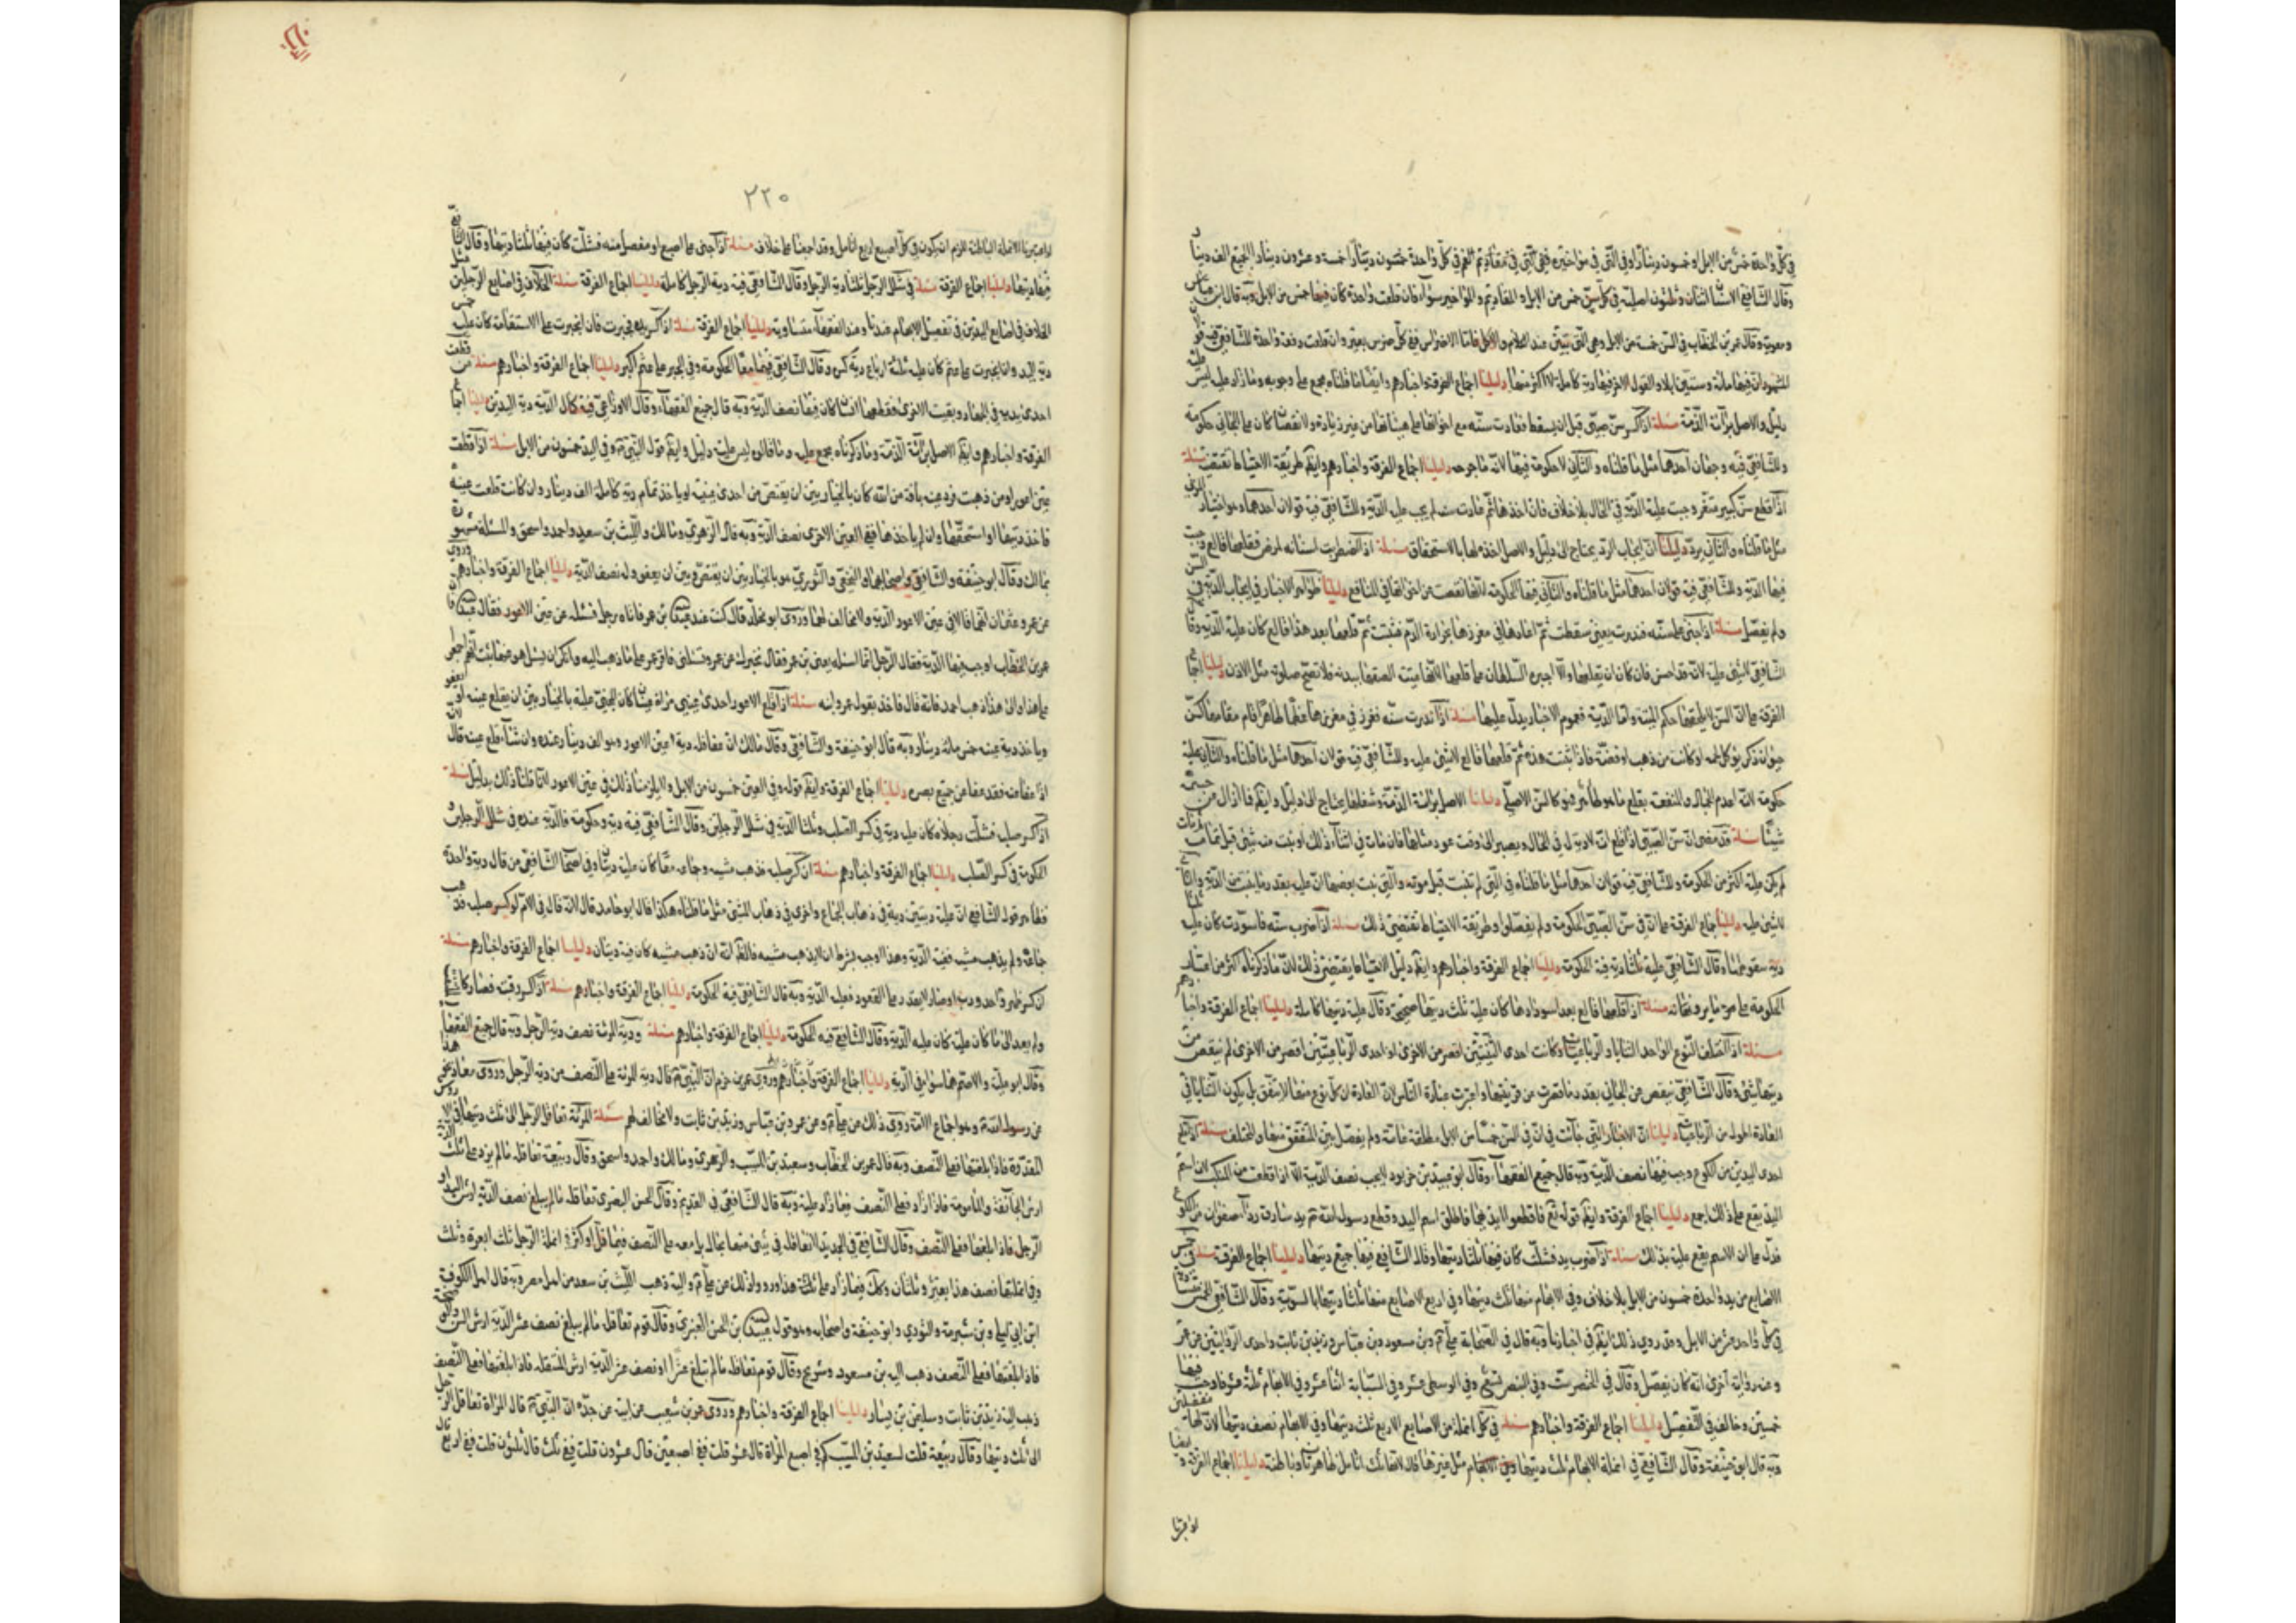 في كل واحدة خمس من الابل او خمسون دينارا وفي التي في مؤاخيره ففي التي في مقاديم الفم في كل واحدة خمسون دينارا خمسة وعشرون دينارا الجميع الف دينا
وقال الشافعي الاسنان اثنان وثلثون اصلية في كل سن خمس من الابل والمقاديم والمواخير سواء فان قلعت واحدة كان فيها خمس من الابل وبه قال ابن عباس
ومعوية وقال عمر بن الخطاب في السن خمسة من الابل وهي التي تبين عند الكلام والاكل فاما الاضراس ففي كل ضرس بعير وان قلعت دفعة واحدة للشافعي فيه قولان
المشهور ان فيها مائة وستين ابلا والقول الاخر فيها دية كاملة لا اكثر منها دليلنا اجماع الفرقة واخبارهم وايضا ما قلناه مجمع على وجوبه وما زاد عليه ليس عليه
دليل والاصل برائة الذمة مسئلة اذا كسر سن صبي قبل ان يسقط فعادت سنه مع اخواتها على هيئاتها من غير زيادة ولا نقصان كان على الجاني حكومة
وللشافعي فيه وجهان احدهما مثل ما قلناه والثاني لا حكومة فيها لانه ما جرحه دليلنا اجماع الفرقة واخبارهم وايضا طريقة الاحتياط تقتضيه مسئلة
اذا قلع سن كبير مثغر وجبت عليه الدية في الحال بلا خلاف فان اخذها ثم عادت سنه لم يجب عليه الدية وللشافعي فيه قولان احدهما وهو اختيار المزني
مثل ما قلناه والثاني يرد دليلنا ان ايجاب الرد يحتاج الى دليل والاصل اخذه لها بالاستحقاق مسئلة اذا اضطربت اسنانه لمرض فقلعها قالع وجب
فيها الدية وللشافعي فيه قولان احدهما مثل ما قلناه والثاني فيها الحكومة لانها نقصت عن اخواتها في المنافع دليلنا ظواهر الاخبار في ايجاب الدية في السن
ولم يفصل مسئلة اذا جنى على سنه فندرت يعني سقطت ثم اعادها في مغرزها بحرارة الدم فثبتت ثم قلعها بعد هذا قالع كان عليه الدية وقال
الشافعي لا شئ عليه لانه قد احسن فان كان ان يقلعها والا اجبره السلطان على قلعها لانها ميتة الصقها ببدنه فلا تصح صلوته مثل الاذن دليلنا اجماع
الفرقة على ان السن لا يلحقها حكم الميتة واما الدية فعموم الاخبار يدل عليها مسئلة اذا ندرت سنه فغرز في مغرزها عظما طاهرا قام مقامها كسن
حيوان ذكي يؤكل لحمه او كانت من ذهب او فضة فاذا ثبتت هذه ثم قلعها قالع لا شئ عليه وللشافعي فيه قولان احدهما مثل ما قلناه والثاني عليه
حكومة لانه اعدم الجمال والمنفعة بقلع ما هو طاهر فهو كالسن الاصلي دليلنا الاصل برائة الذمة وشغلها يحتاج الى دليل وايضا فما ازال من جسمه
شيئا مسئلة قد مضى ان سن الصبي اذا قلع انه لا دية له في الحال ويصبر الى وقت عود مثلها فان مات في اثناء ذلك او نبت منه شئ قبل تمام نباته
لم يكن عليه اكثر من الحكومة وللشافعي فيه قولان احدهما مثل ما قلناه في التي لم تنبت قبل موته والتي نبت بعضها ان عليه بقدر ما نبت من الدية والثاني
لا شئ عليه دليلنا اجماع الفرقة على ان في سن الصبي الحكومة ولم يفصلوا وطريقة الاحتياط تقتضي ذلك مسئلة اذا ضرب سنه فاسودت كان عليه ثلثا
دية سقوطها وقال الشافعي عليه ثلثا دية فيه الحكومة دليلنا اجماع الفرقة واخبارهم وايضا دليل الاحتياط يقتضي ذلك لان ما ذكرناه اكثر من اعتبار
الحكومة على موجبا يرونها مسئلة اذا قلعها قالع بعد اسودادها كان عليه ثلث ديتها صحيحة وقال عليه ديتها كاملة دليلنا اجماع الفرقة واخبارهم
مسئلة اذا اختلف النوع الواحد الثنايا والرباعيات وكانت احدى الثنيتين اقصر من الاخرى او احدى الرباعيتين اقصر من الاخرى لم ينقص من
ديتها شئ وقال الشافعي ينقص من الجاني بقدر ما قصرت من قرينتها واعتبرت عبارة الناس لان العادة ان كل نوع منها لا يتفق بل يكون الثنايا في
العادة اطول من الرباعيات دليلنا ان الاخبار التي جائت في ان في السن خمسا من الابل مطلقة عامة ولم يفصل بين المتفق منها والمختلف مسئلة اذا قلع
احدى اليدين من الكوع وجب فيها نصف الدية وبه قال جميع الفقهاء وقال ابو عبيد بن حربوه لا يجب نصف الدية الا اذا قلعت من المنكب لان اسم
اليد يقع على ذلك اجمع دليلنا اجماع الفرقة وايضا قوله تع فاقطعوا ايديهما فاطلق اسم اليد وقطع رسول الله ص يد سارق رداء صفوان من الكوع
فدل على ان الاسم يقع عليه بذلك مسئلة اذا ضرب يده فشلت كان فيها ثلثا ديتها وقال الشافعي فيها جميع ديتها دليلنا اجماع الفرقة مسئلة في خمس
الاصابع من يد واحدة خمسون من الابل بلا خلاف وفي الابهام منها ثلث ديتها وفي اربع الاصابع منها ثلثا ديتها بالسوية وقال الشافعي الخمس متساوية
في كل واحد عشر من الابل وقد روي ذلك ايضا في اخبارنا وبه قال في الصحابة علي ع وبن مسعود وبن عباس وزيد بن ثابت واحدى الروايتين عن عمر
وعنه رواية اخرى انه كان يفصل وقال في الخنصر ست وفي البنصر تسع وفي الوسطى عشر وفي السبابة اثنا عشر وفي الابهام ثلثة عشر فاوجب فيها
خمسين وخالف في التفصيل دليلنا اجماع الفرقة واخبارهم مسئلة في كل انملة من الاصابع الاربع ثلث ديتها وفي الابهام نصف ديتها لان لها مفصلين
وبه قال ابو حنيفة وقال الشافعي في انملة الابهام ثلث ديتها وفي الابهام مثل غيرها قال لانها ثلث انامل ظاهرتان وباطنة دليلنا اجماع الفرقة وايضا
لو اعتبرنا
٣٢٥
لو اعتبرنا الانملة الباطنة للزم ان يكون في كل اصبع اربع انامل وقد اجمعنا على خلافه مسئلة اذا جنى على اصبع او مفصل منه فشلت كان فيها ثلثا ديتها وقال الشافعي
فيها ديتها دليلنا اجماع الفرقة مسئلة في شلل الرجل ثلثا دية الرجل وقال الشافعي فيه دية الرجل كاملة دليلنا اجماع الفرقة مسئلة الخلاف في اصابع الرجلين مثل
الخلاف في اصابع اليدين في تفضيل الابهام عندنا وعند الفقهاء متساوية دليلنا اجماع الفرقة مسئلة اذا كسر يده فجبرت فان انجبرت على الاستقامة كان عليه خمس
دية اليد وان انجبرت على عثم كان عليه ثلثة ارباع دية كسره وقال الشافعي فيهما معا الحكومة وفي الجبر على عثم اكثر دليلنا اجماع الفرقة واخبارهم مسئلة من قطعت
احدى يديه في الجهاد وبقيت الاخرى فقطعها انسان كان فيها نصف الدية وبه قال جميع الفقهاء وقال الاوزاعي فيه كمال الدية دية اليدين دليلنا اجماع
الفرقة واخبارهم وايضا الاصل برائة الذمة وما ذكرناه مجمع عليه وما قالوه ليس عليه دليل وايضا قول النبي ص وفي اليد خمسون من الابل مسئلة اذا قلعت
عين اعور او من ذهبت فرد عينه بافة من الله كان بالخيار بين ان يقتص من احدى عينيه او ياخذ تمام دية كاملة الف دينار وان كانت قلعت عينه
فاخذ ديتها او استحقها وان لم ياخذها ففي العين الاخرى نصف الدية وبه قال الزهري ومالك والليث بن سعيد واحمد واسحق والمسئلة مشهورة
بمالك وقال ابو حنيفة والشافعي واصحابهما والنخعي والثوري هو بالخيار بين ان يقتص وبين ان يعفو وله نصف الدية دليلنا اجماع الفرقة واخبارهم وروي
عن عمر وعثمان انهما قالا في عين الاعور الدية ولا مخالف لهما وروى ابو مخلد قال كنت عند عبد الله بن عمر فاتاه رجل فسئله عن عين الاعور فقال عبد الله قال
عمر بن الخطاب اوجب فيها الدية فقال الرجل انما اسئله يعني بن عمر فقال نخبرك عن عمر وتسئلني فاقر عمر على ما ذهب اليه وانكر ان يسئل هو عنها فثبت انهم اجمعوا
على هذا والى هذا ذهب احمد فانه قال فاخذ بقول عمر وابنه مسئلة اذا قلع الاعور احدى عيني من له عينان كان المجني عليه بالخيار بين ان يقلع عينه او يعفو
وياخذ دية عينه خمس مائة دينار وبه قال ابو حنيفة والشافعي وقال مالك ان عفا فله دية عين الاعور وهو الف دينار عنده وان شاء قلع عينه قال لانه
اذا عفا عنه فقد عفا عن جميع بصره دليلنا اجماع الفرقة وايضا قوله وفي العين خمسون من الابل ولا يلزمنا ذلك في عين الاعور لانا قلنا ذلك بدليل مسئلة
اذا كسر صلبه فشلت رجلاه كان عليه دية في كسر الصلب وثلثا الدية في شلل الرجلين وقال الشافعي فيه دية وحكومة فالدية عنده في شلل الرجلين و
الحكومة في كسر الصلب دليلنا اجماع الفرقة واخبارهم مسئلة ان كسر صلبه فذهب مشيه وجماعه معا كان عليه ديتان وفي اصحاب الشافعي من قال دية واحدة
ظاهر قول الشافعي ان عليه ديتين دية في ذهاب الجماع واخرى في ذهاب المشي مثل ما قلناه هكذا قال ابو حامد قال لانه قال في الام لو كسر صلبه فذهب
جماعه ولم يذهب مشيه ففيه الدية وهذا اوجب بشرط ان لا يذهب مشيه فالظاهر انه ان ذهب مشيه كان فيه ديتان دليلنا اجماع الفرقة واخبارهم مسئلة
ان كسر ظهره فاحدودب او صار لا يقدر على القعود فعليه الدية وبه قال الشافعي فيه الحكومة دليلنا اجماع الفرقة واخبارهم مسئلة اذا كسر رقبته فصار كالملتفت
ولم يعد الى ما كان عليه كان عليه الدية وقال الشافعي فيه الحكومة دليلنا اجماع الفرقة واخبارهم مسئلة ودية المرئة نصف دية الرجل وبه قال جميع الفقهاء
وقال ابن علية والاصم هما سواء في الدية دليلنا اجماع الفرقة واخبارهم وروي عمرو بن حزم ان النبي ص قال دية المرئة على النصف من دية الرجل وروى معاذ نحو هذا
عن رسول الله ص وهو اجماع الامة وروي ذلك عن علي ع وعن عمر وبن عباس وزيد بن ثابت ولا مخالف لهم مسئلة المرئة تعاقل الرجل الى ثلث ديتها في الاروش
المقدرة فاذا بلغتها فعلى النصف وبه قال عمر بن الخطاب وسعيد بن المسيب والزهري ومالك واحمد واسحق وقال ربيعة تعاقله ما لم يزد على ثلث الدية
ارش الجائفة والمامومة فاذا زاد فعلى النصف فيما زاد عليه وبه قال الشافعي في القديم وقال الحسن البصري تعاقله ما لم يبلغ نصف الدية ارش اليد او
الرجل فاذا بلغتها فعلى النصف وقال الشافعي في الجديد لا تعاقله في شئ منها بحال بل معه على النصف فيما قل او كثر في انملة الرجل ثلث ابعرة وثلث
وفي انملتها نصف هذا بعير وثلثان وكذلك فيما زاد على ثلثه هذا ورووا ذلك عن علي ع واليه ذهب الليث بن سعد من اهل مصر وبه قال اهل الكوفة
ابن ابي ليلى وبن شبرمة والثوري وابو حنيفة واصحابه وهو قول عبيد الله بن الحسن العنبري وقال قوم تعاقله ما لم يبلغ نصف عشر الدية ارش السن والموضحة
فاذا بلغتها فعلى النصف ذهب اليه بن مسعود وشريح وقال قوم تعاقله ما لم تبلغ عشرا او نصف عشر الدية ارش المنقلة فاذا بلغتها فعلى النصف
ذهب اليه زيد بن ثابت وسليمان بن يسار دليلنا اجماع الفرقة واخبارهم وروى عمرو بن شعيب عن ابيه عن جده ان النبي ص قال المراة تعاقل الرجل
الى ثلث ديتها وقال ربيعة قلت لسعيد بن المسيب كم في اصبع المراة قال عشر قلت ففي اصبعين قال عشرون قلت ففي ثلث قال ثلثون قلت ففي اربع قال